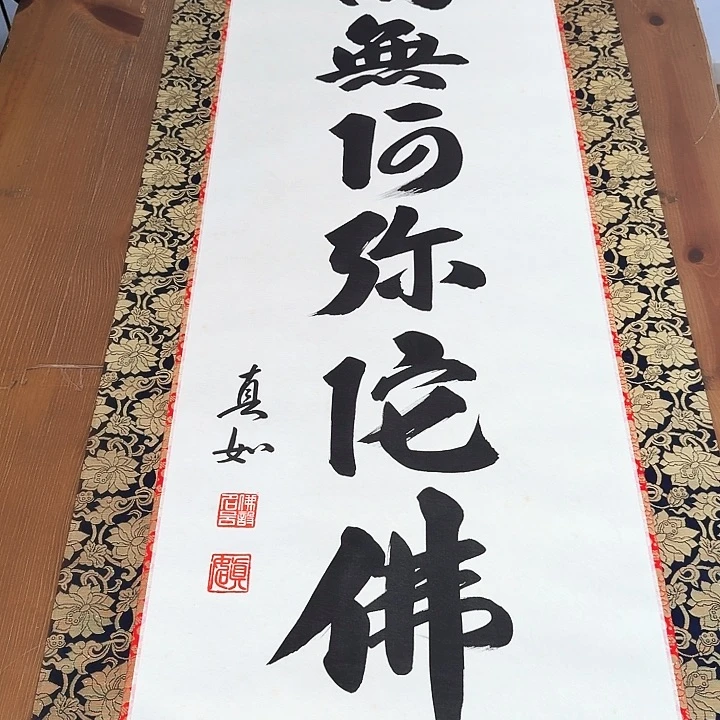 南無阿弥陀佛
真如